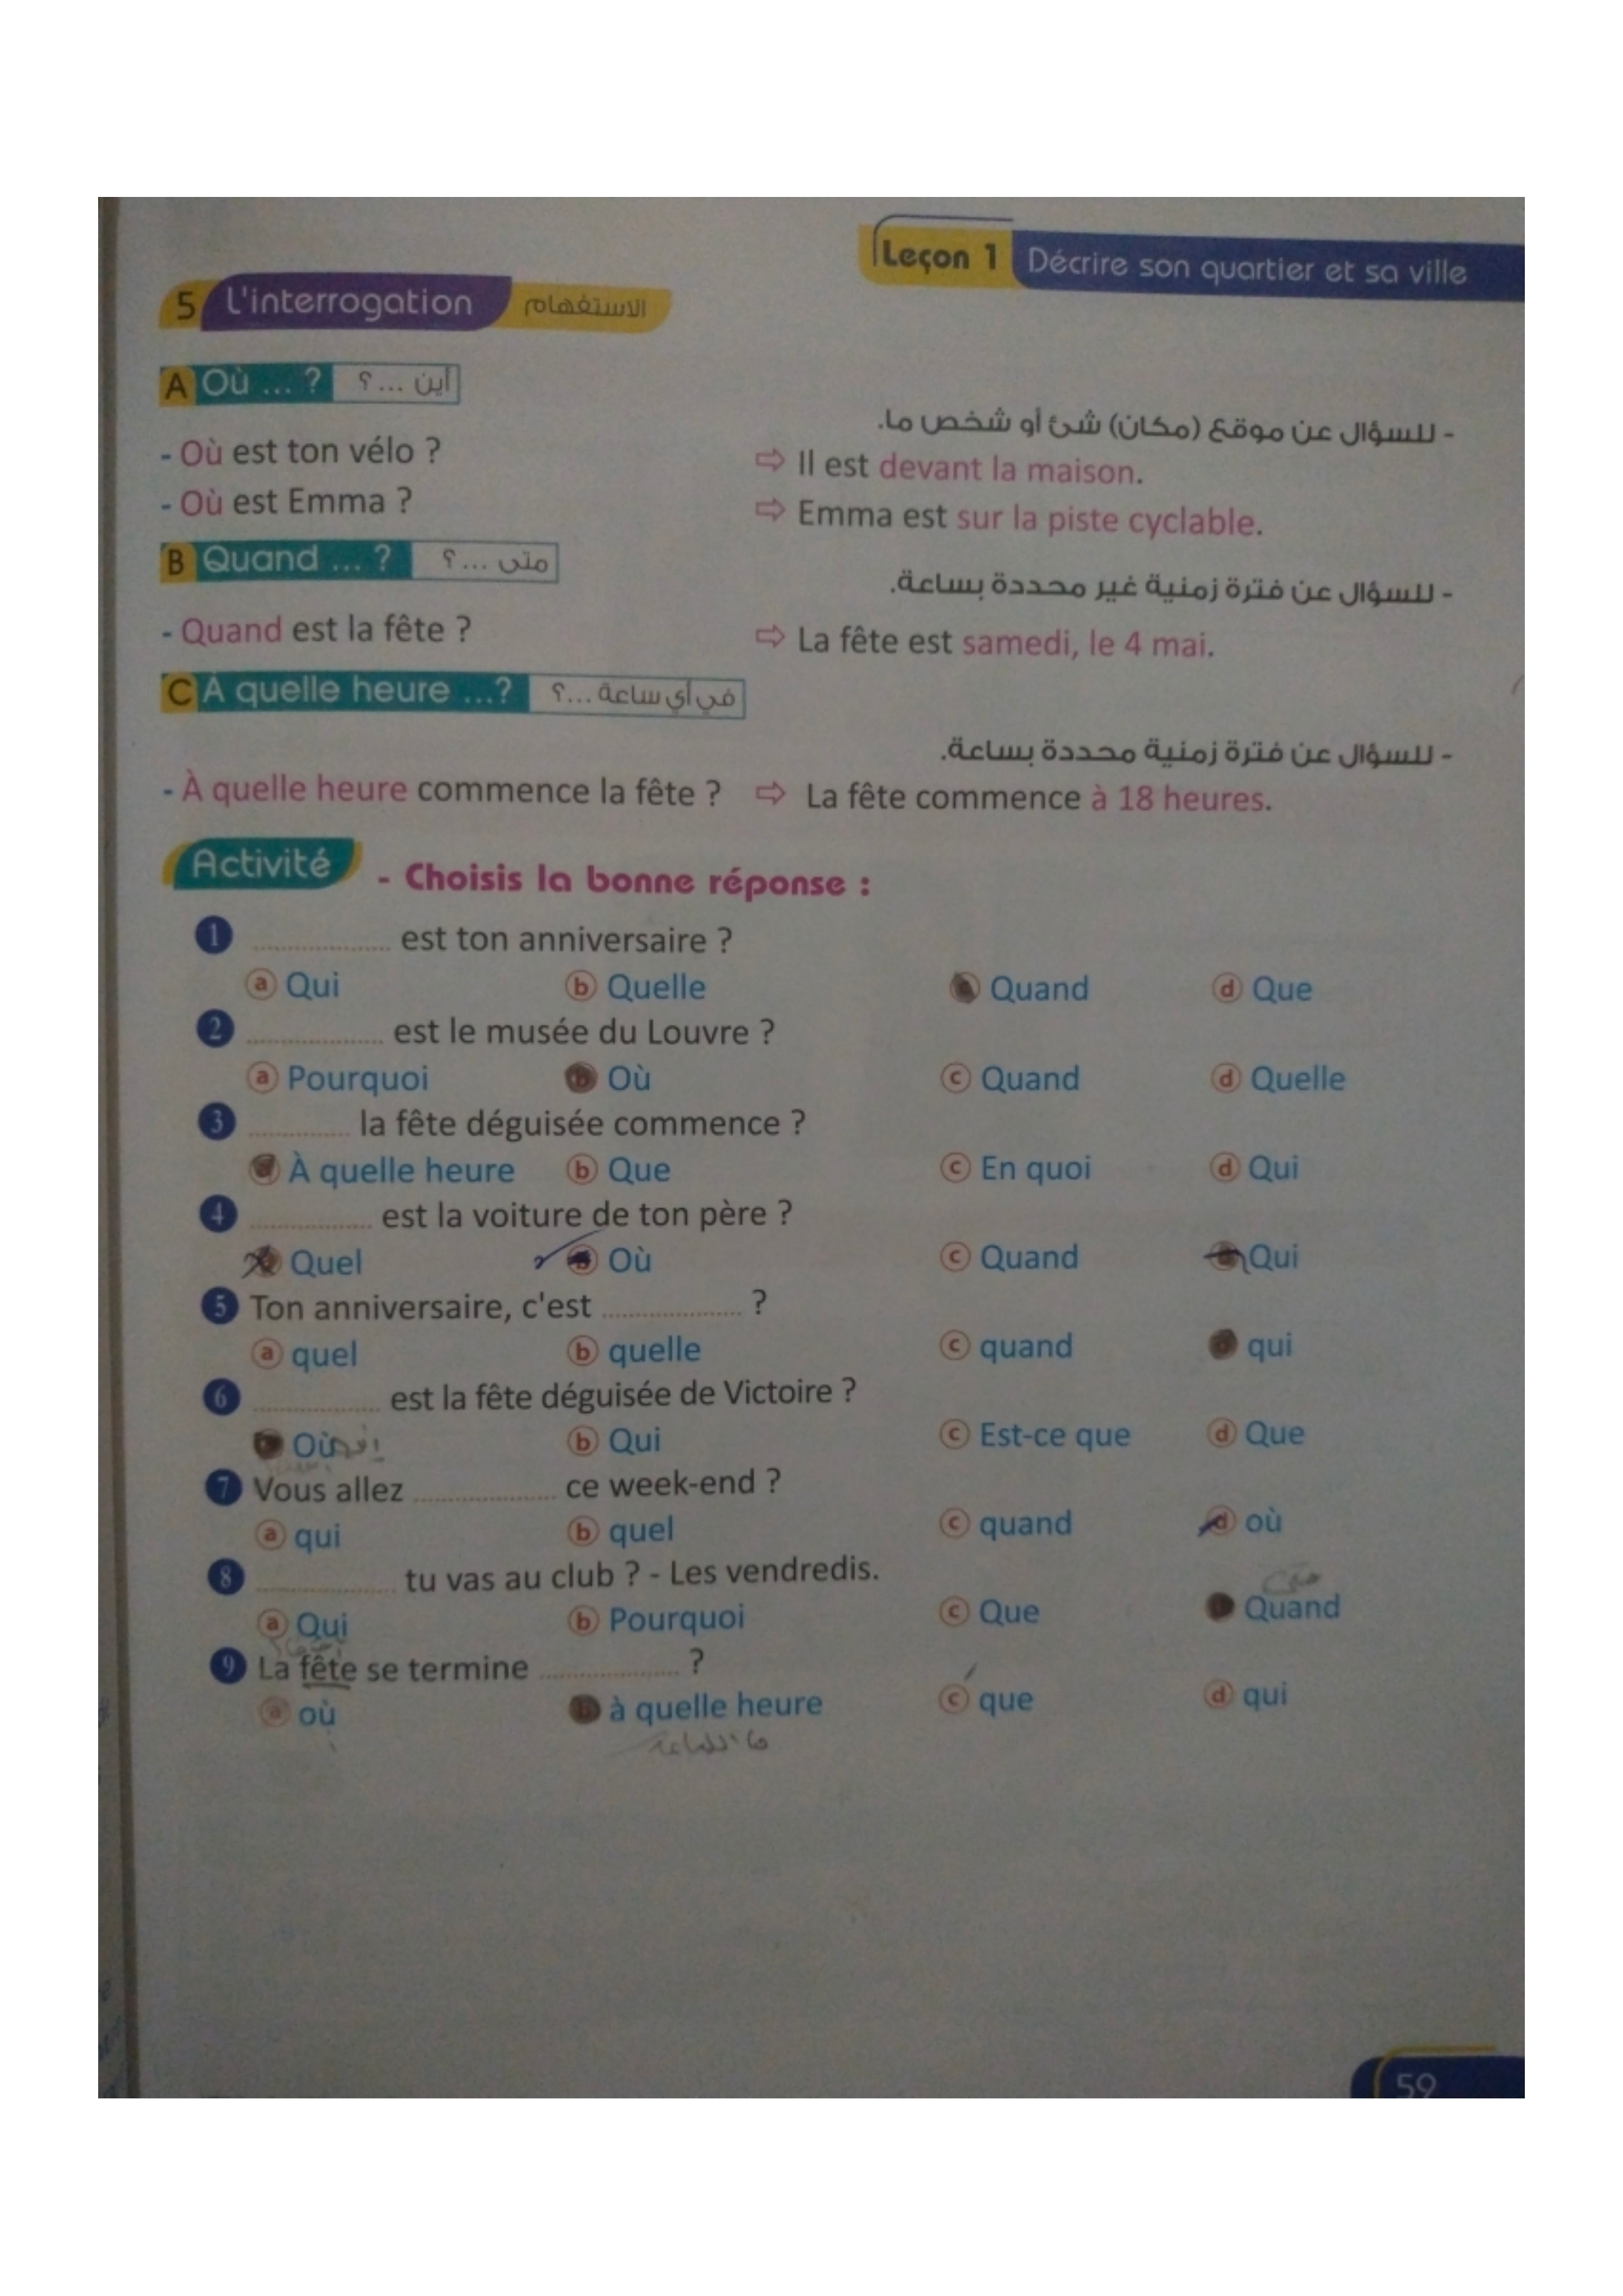 Leçon 1 Décrire son quartier et sa ville
5 L'interrogation الاستفهام
A Où ... ? أين ... ؟
- للسؤال عن موقع (مكان) شئ أو شخص ما.
- Où est ton vélo ? ⇨ Il est devant la maison.
- Où est Emma ? ⇨ Emma est sur la piste cyclable.
B Quand ... ? متى ... ؟
- للسؤال عن فترة زمنية غير محددة بساعة.
- Quand est la fête ? ⇨ La fête est samedi, le 4 mai.
C À quelle heure ...? في أي ساعة ...؟
- للسؤال عن فترة زمنية محددة بساعة.
- À quelle heure commence la fête ? ⇨ La fête commence à 18 heures.
Activité - Choisis la bonne réponse :
1 .................. est ton anniversaire ?
a Qui b Quelle Quand d Que
2 .................. est le musée du Louvre ?
a Pourquoi b Où c Quand d Quelle
3 ............. la fête déguisée commence ?
a À quelle heure b Que c En quoi d Qui
4 ................ est la voiture de ton père ?
Quel b Où c Quand Qui
5 Ton anniversaire, c'est .................. ?
a quel b quelle c quand qui
6 ................ est la fête déguisée de Victoire ?
Où b Qui c Est-ce que d Que
7 Vous allez .................. ce week-end ?
a qui b quel c quand d où
متى
8 .................. tu vas au club ? - Les vendredis.
a Qui b Pourquoi c Que Quand
9 La fête se termine .................. ?
a où b à quelle heure c que d qui
ما الساعة
59